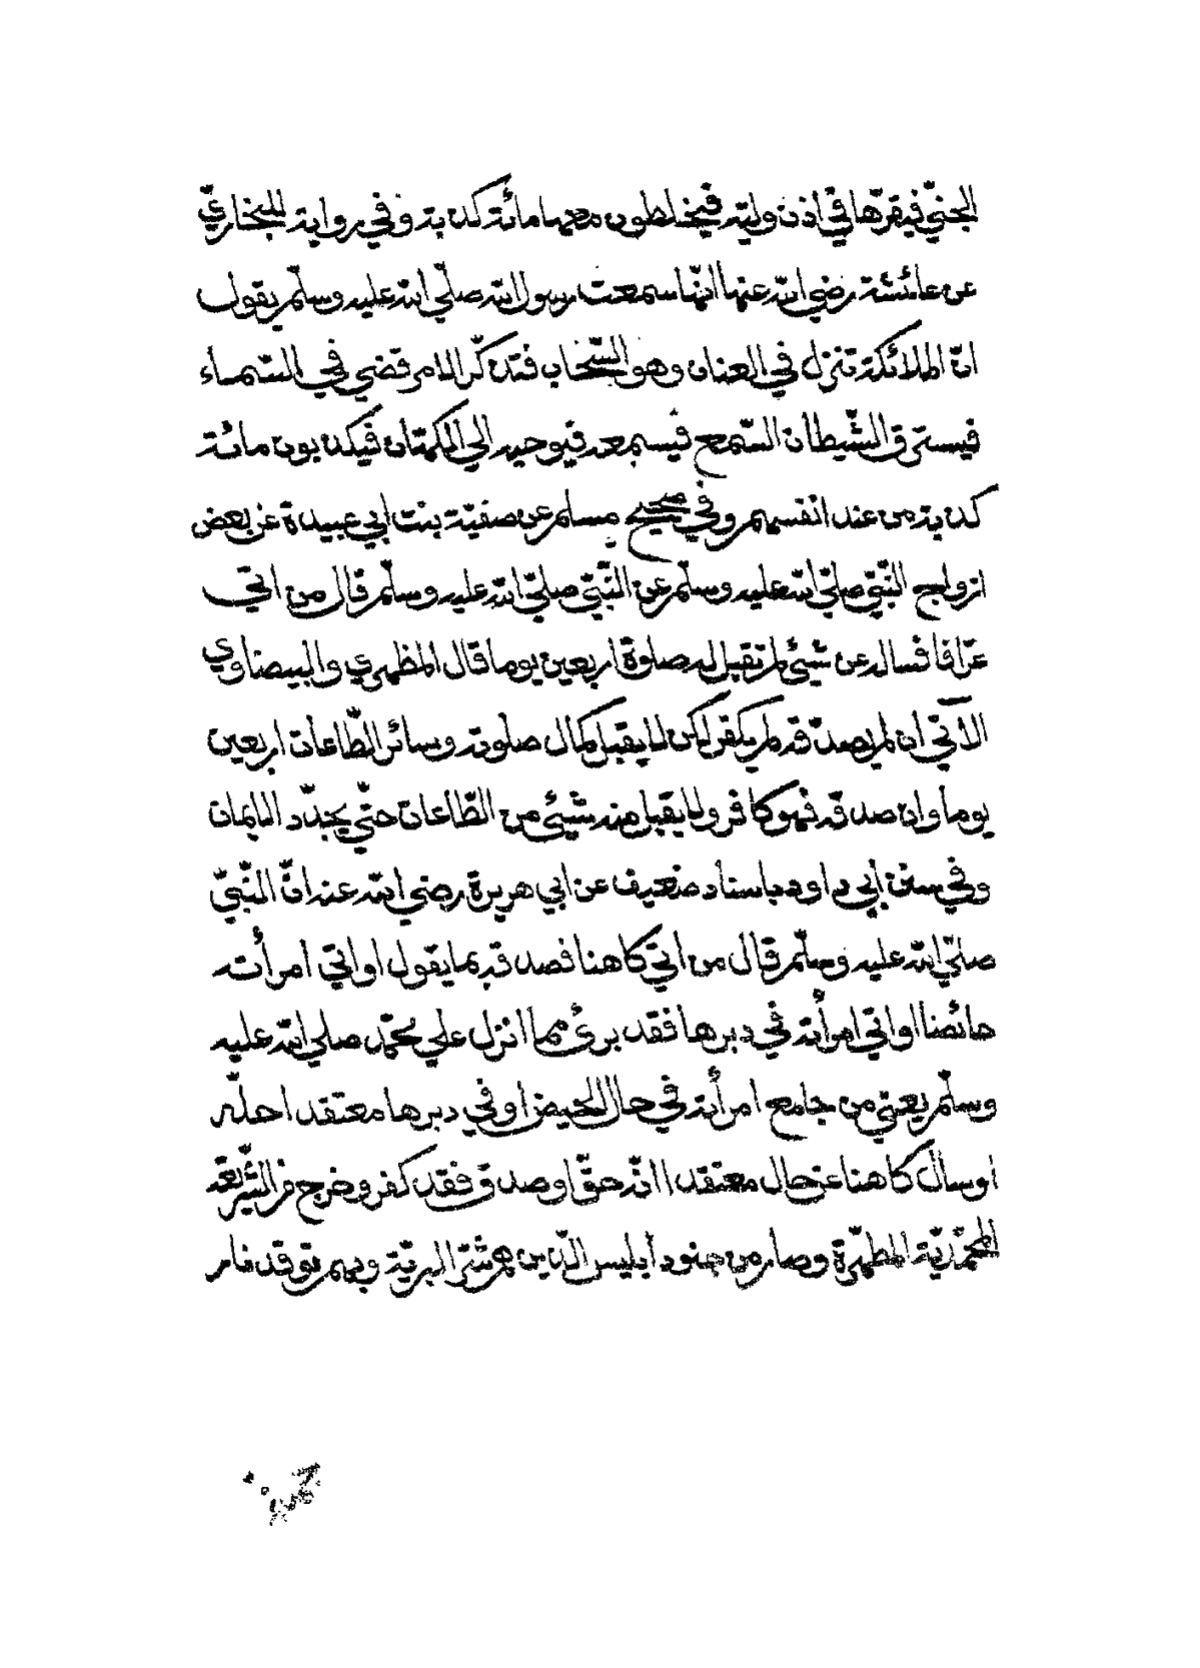 الجنّي فيقرّها في اذن وليّه فيخلطون معها مائة كذبة وفي رواية للبخاريّ
عن عائشة رضي الله عنها انّها سمعت رسول الله صلّى الله عليه وسلّم يقول
انّ الملائكة تنزل في العنان وهو السّحاب فتذكّر الامر قضي في السّماء
فيسترق الشّيطان السّمع فيسمعه فيوحيه الي الكهّان فيكذبون مائة
كذبة من عند انفسهم وفي صحيح مسلم عن صفيّة بنت ابي عبيدة عن بعض
ازواج النّبيّ صلّي الله عليه وسلّم عن النّبيّ صلّي الله عليه وسلّم قال من اتي
عرّافا فساله عن شيئ لم تقبل له صلوة اربعين يوما قال المظهري والبيضاوي
الآتي ان لم يصدّقه لم يكفر لكن لا يقبل كمال صلوته وسائر الطّاعات اربعين
يوما وان صدقه فهو كافر ولا يقبل منه شيئ من الطّاعات حتّي يجدّد الايمان
وفي سنن أبي داود باسناد ضعيف عن ابي هريرة رضي الله عنه انّ النّبيّ
صلّي الله عليه وسلّم قال من اتي كاهنا فصدقه بما يقول او اتي امرأته
حائضا او اتي امرأته في دبرها فقد برئ مما انزل علي محمّد صلي الله عليه
وسلّم يعني من جامع امرأته في حال الحيض او في دبرها معتقدا حلّه
او سال كاهنا عن حال معتقدا انّه حقّ او صدق فقد كفر وخرج من الشّريعة
المحمّديّة المطهّرة وصار من جنود أبليس الّذين هم شرّ البريّة وبهم توقد نار